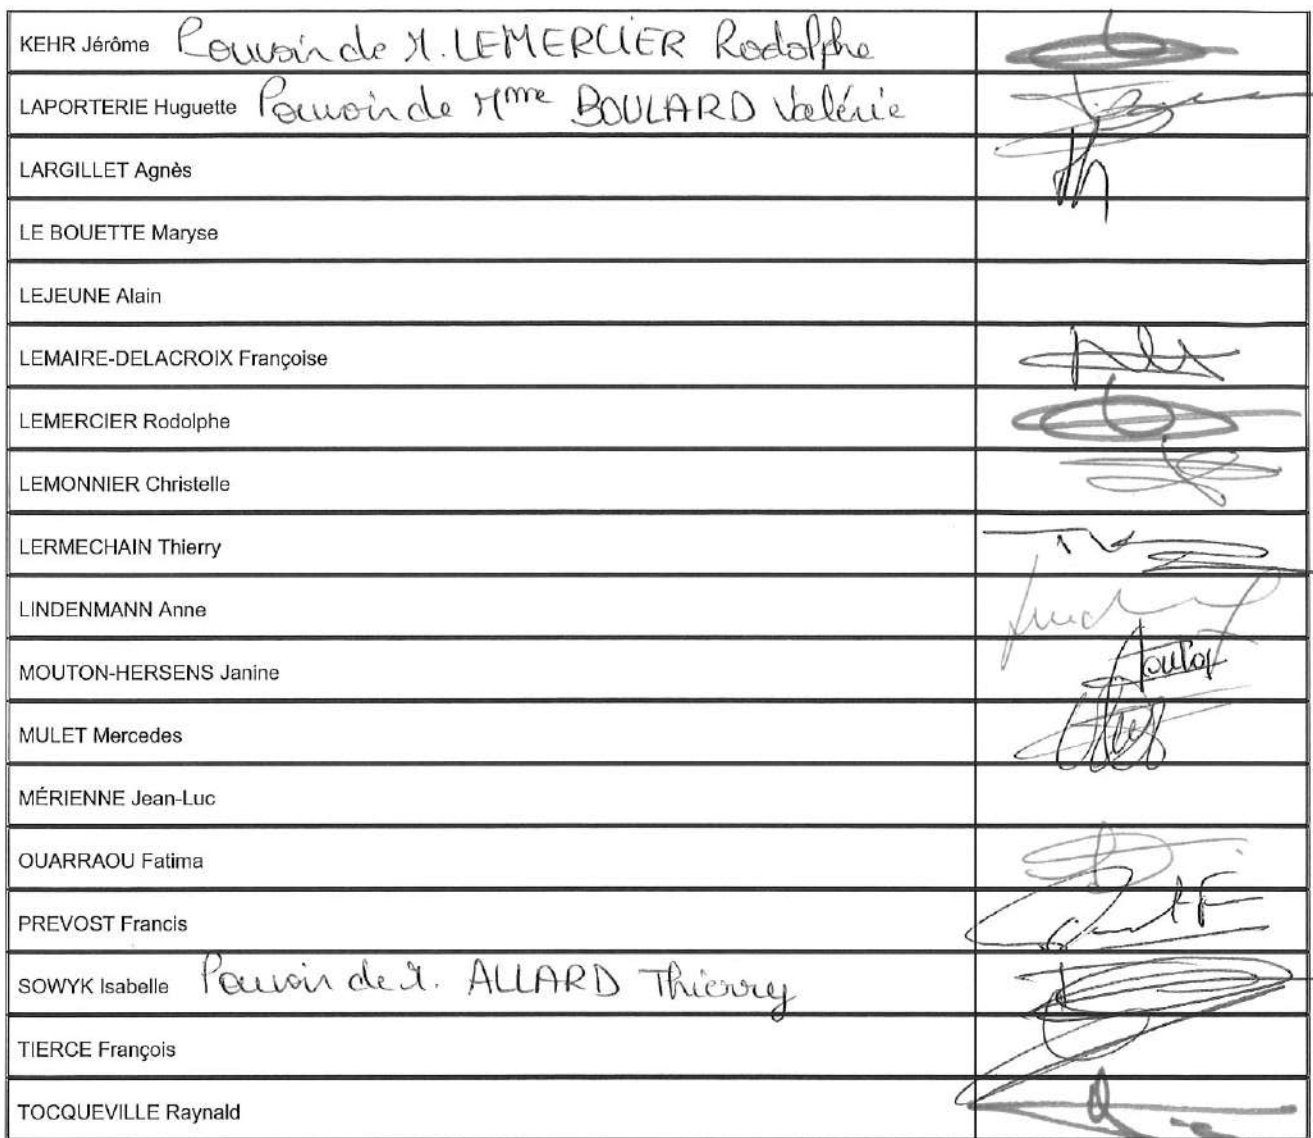 KEHR Jérôme Pouvoir de M. LEMERCIER Rodolphe
LAPORTERIE Huguette Pouvoir de Mme BOULARD Valérie
LARGILLET Agnès
LE BOUETTE Maryse
LEJEUNE Alain
LEMAIRE-DELACROIX Françoise
LEMERCIER Rodolphe
LEMONNIER Christelle
LERMECHAIN Thierry
LINDENMANN Anne
MOUTON-HERSENS Janine
MULET Mercedes
MÉRIENNE Jean-Luc
OUARRAOU Fatima
PREVOST Francis
SOWYK Isabelle Pouvoir de M. ALLARD Thierry
TIERCE François
TOCQUEVILLE Raynald